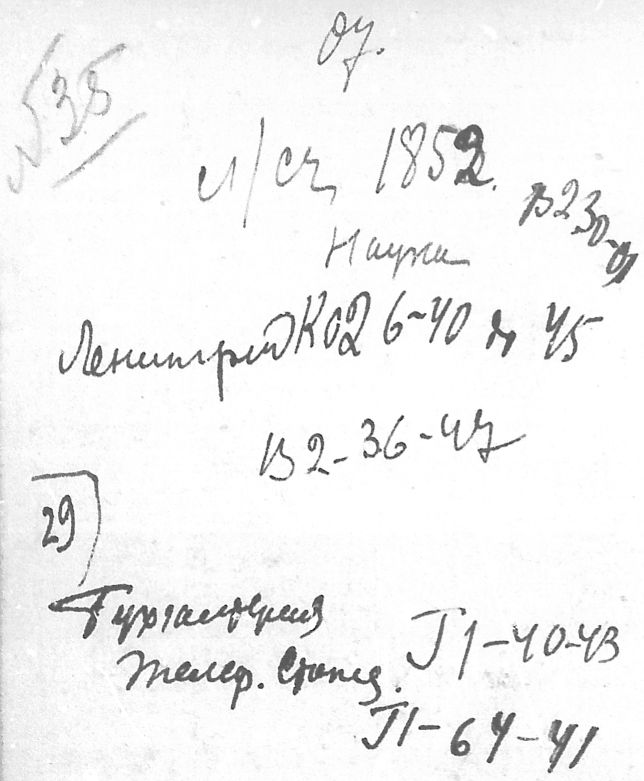 07.
№ 35
л/сч 1852.
В 2 30-01
Наука
Ленинград К0 2 6-40 до 45
В 2-36-47
29
Бухгалтерия
Телеф. Станц. Г1-40-43
Г1-64-41